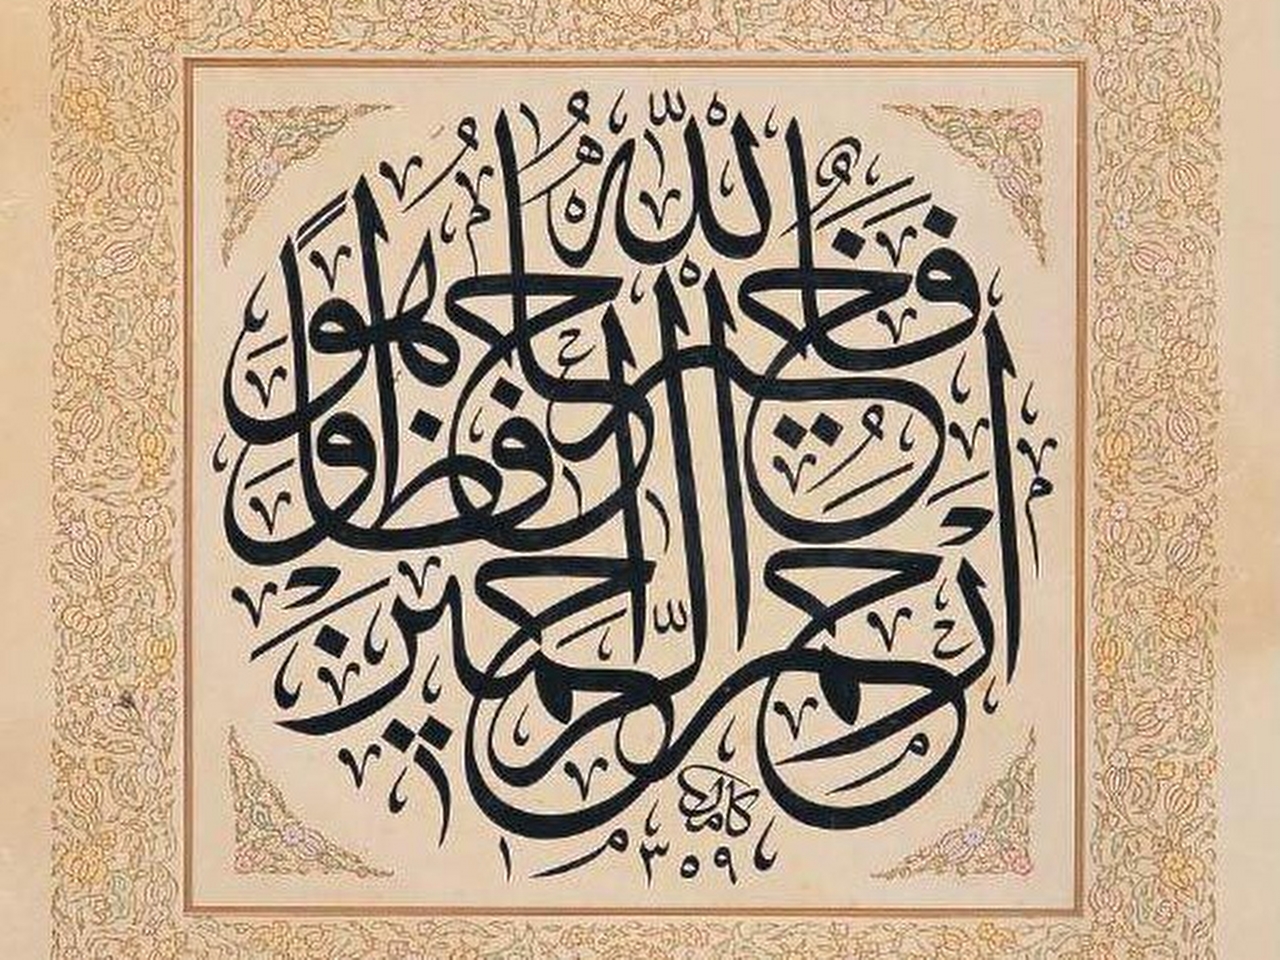 فَاللّٰهُ خَيْرٌ حَافِظًا وَهُوَ أَرْحَمُ الرَّاحِمِينَ
كامل
١٣٥٩